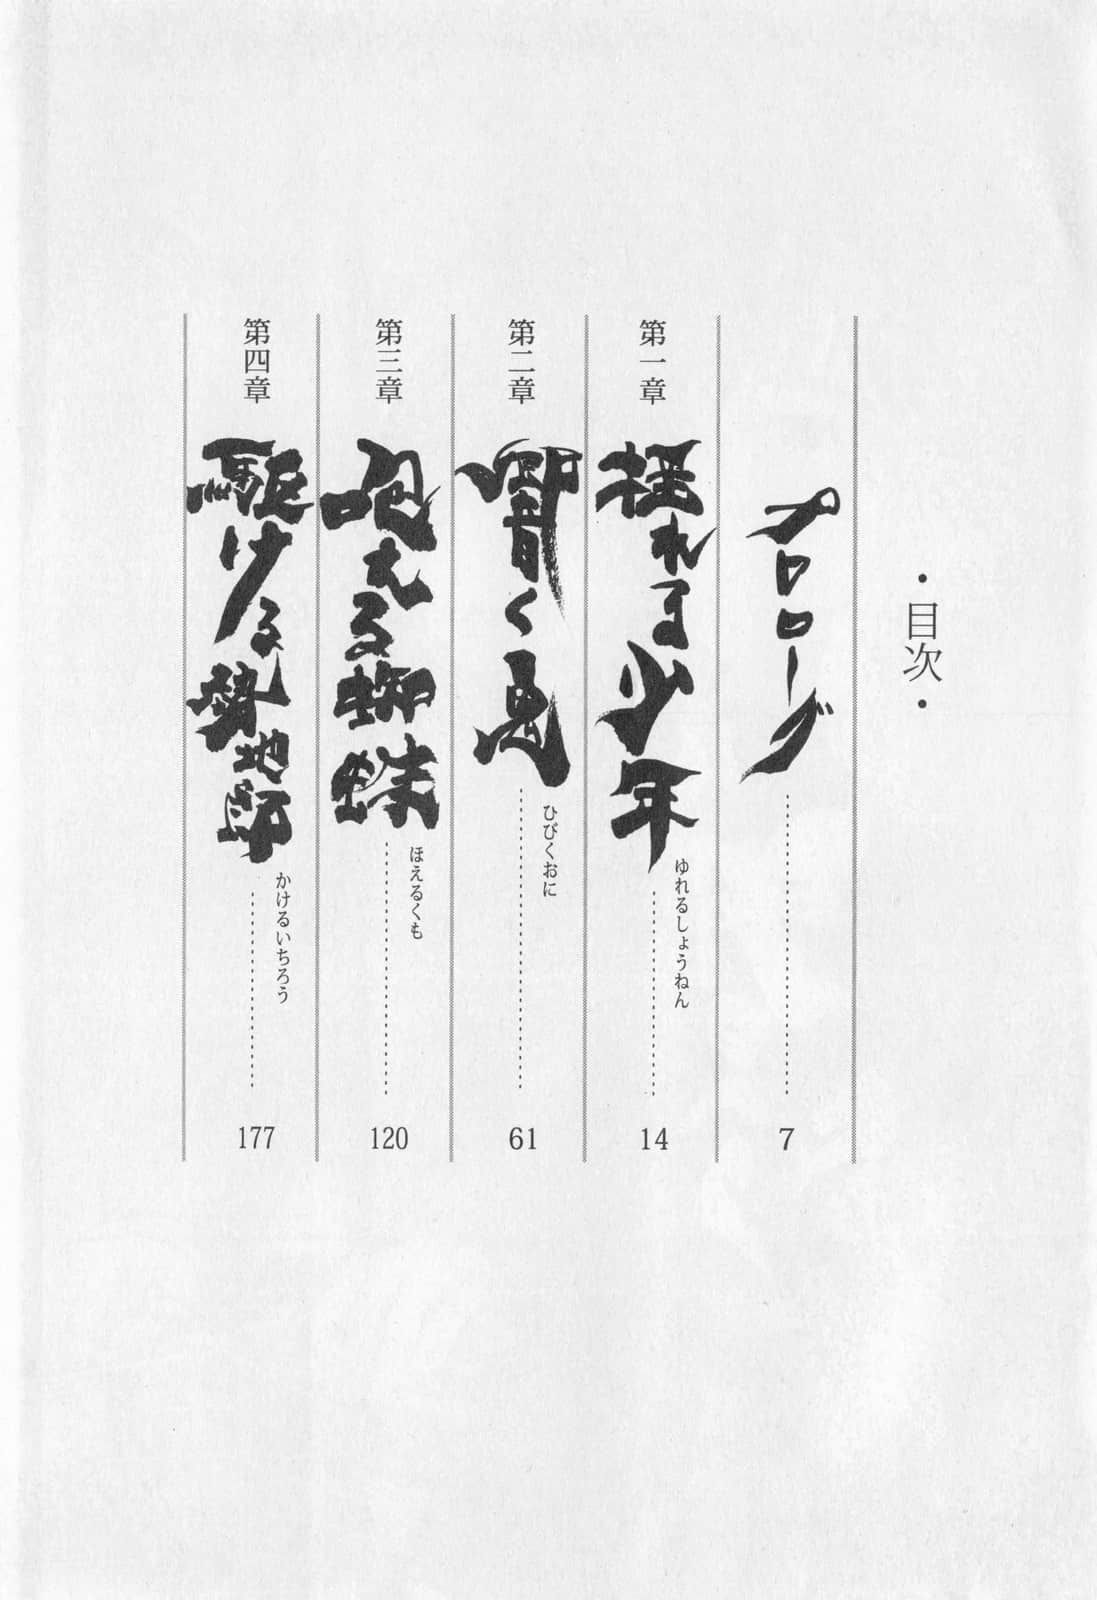 ・目次・
プロローグ
7
第一章
揺れる少年
ゆれるしょうねん
14
第二章
響く鬼
ひびくおに
61
第三章
咆える蜘蛛
ほえるくも
120
第四章
駆ける勢地郎
かけるいちろう
177